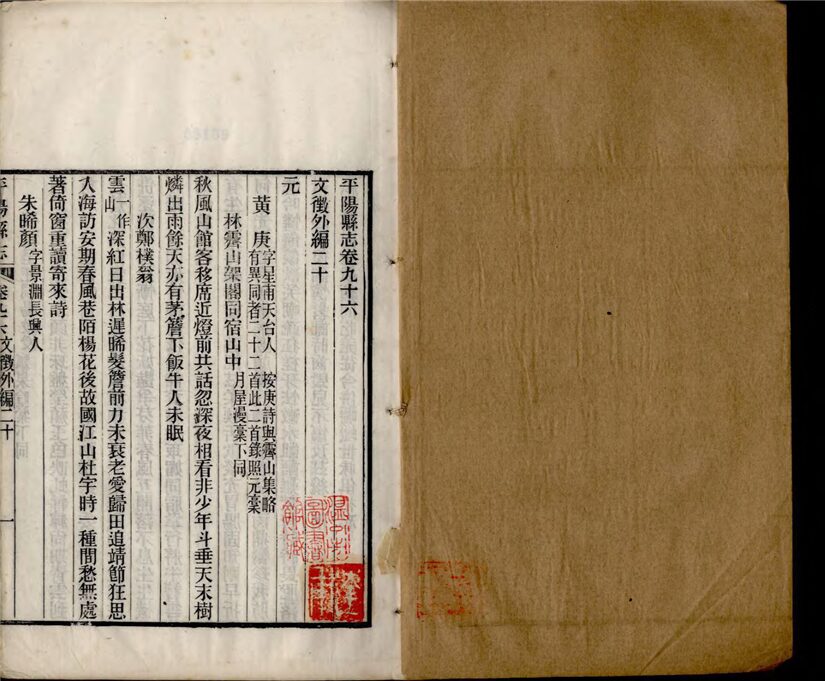 平陽縣志卷九十六
文徵外編二十
元
黄庚字星甫天台人 按庚詩與霽山集略
有異同者二十二首此二首錄照元槀
林霽山架閣同宿山中月屋漫槀下同
秋風山館客移席近燈前共話忽深夜相看非少年斗垂天末樹
燐出雨餘天亦有茅簷下飯牛人未眠
次鄭樸翁
雲一作山深紅日出林遲晞髮簷前力未衰老愛歸田追靖節狂思
人海訪安期春風巷陌楊花後故國江山杜宇時一種閒愁無處
著倚窗重讀寄來詩
朱晞顏字景淵長興人
平陽縣志
卷九十六文徵外編二十
一
溫州
圖書
館藏